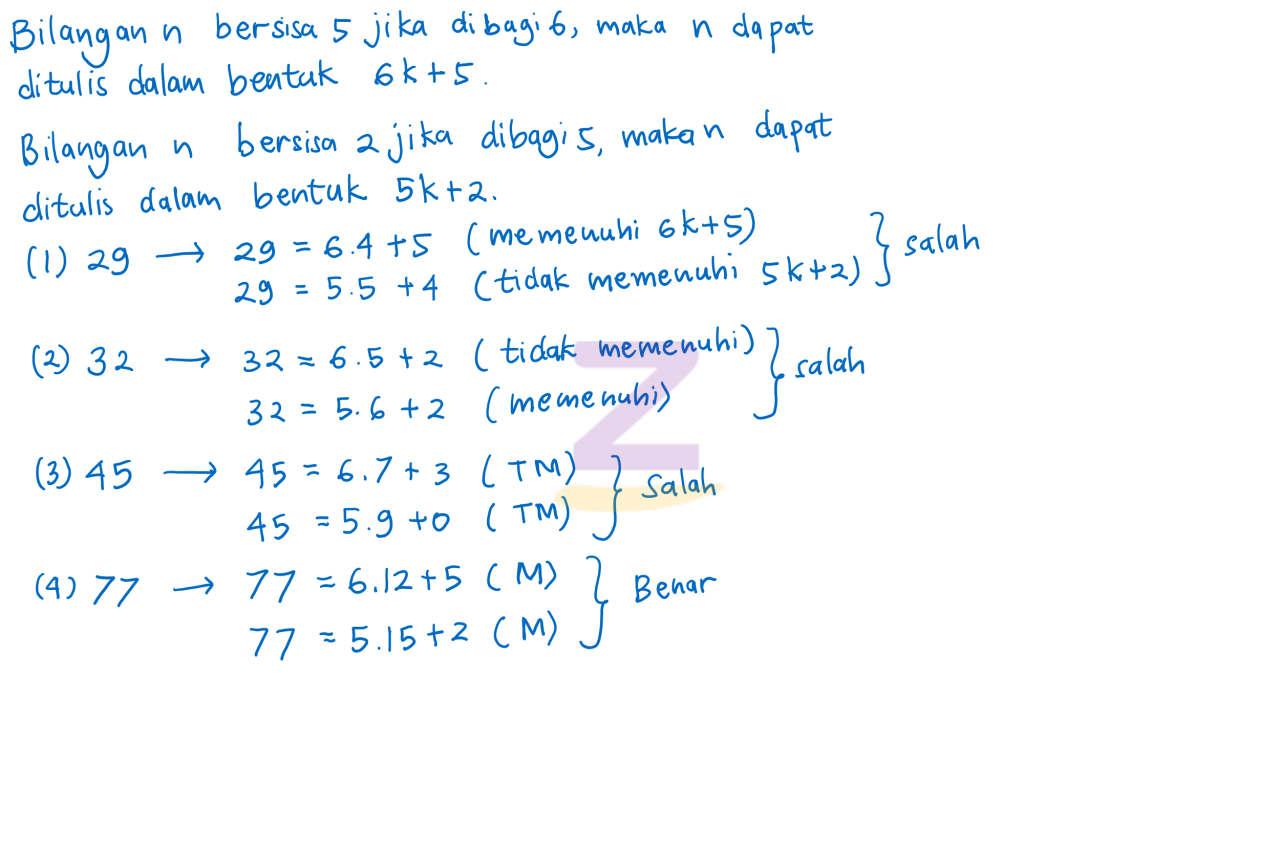 Bilangan n bersisa 5 jika dibagi 6, maka n dapat
ditulis dalam bentuk 6k+5.
Bilangan n bersisa 2 jika dibagi 5, maka n dapat
ditulis dalam bentuk 5k+2.
(1) 29 → 29 = 6.4 +5 (memenuhi 6k+5)
29 = 5.5 +4 (tidak memenuhi 5k+2) } salah
(2) 32 → 32 = 6.5 +2 (tidak memenuhi)
32 = 5.6 +2 (memenuhi) } salah
(3) 45 → 45 = 6.7 + 3 (TM)
45 = 5.9 +0 (TM) } Salah
(4) 77 → 77 = 6.12+5 (M)
77 = 5.15+2 (M) } Benar